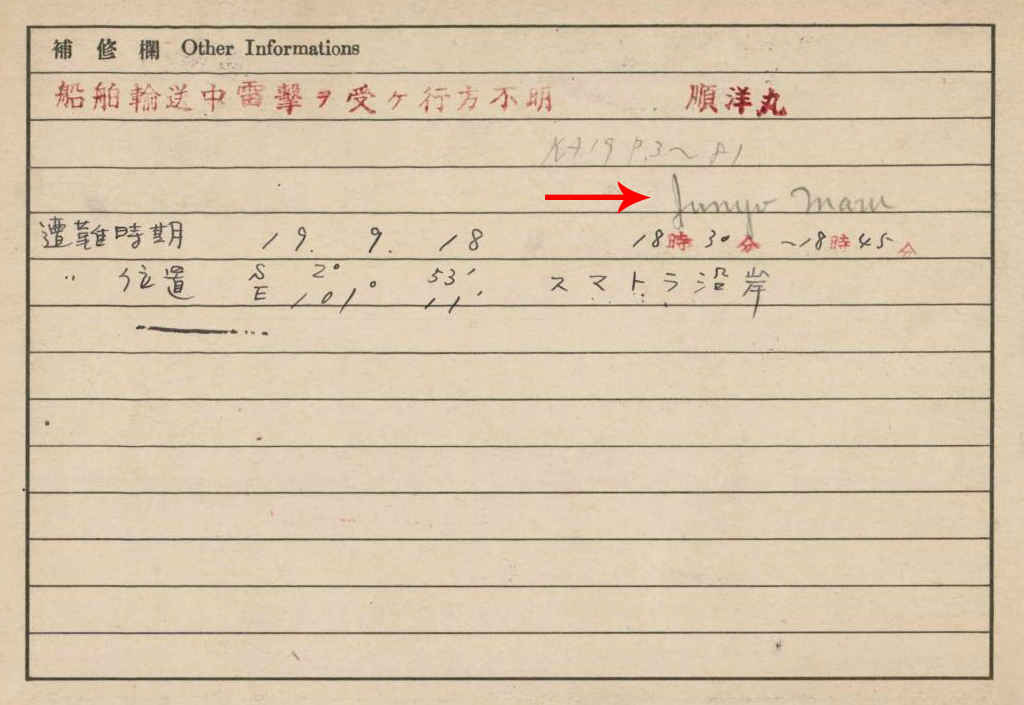 補修欄 Other Informations
船舶輸送中雷撃ヲ受ケ行方不明 順洋丸
P.3~81
Junyo Maru
遭難時期 19. 9. 18 18時30分~18時45分
〃 位置 S 2° 53′ スマトラ沿岸
E 101° 11′